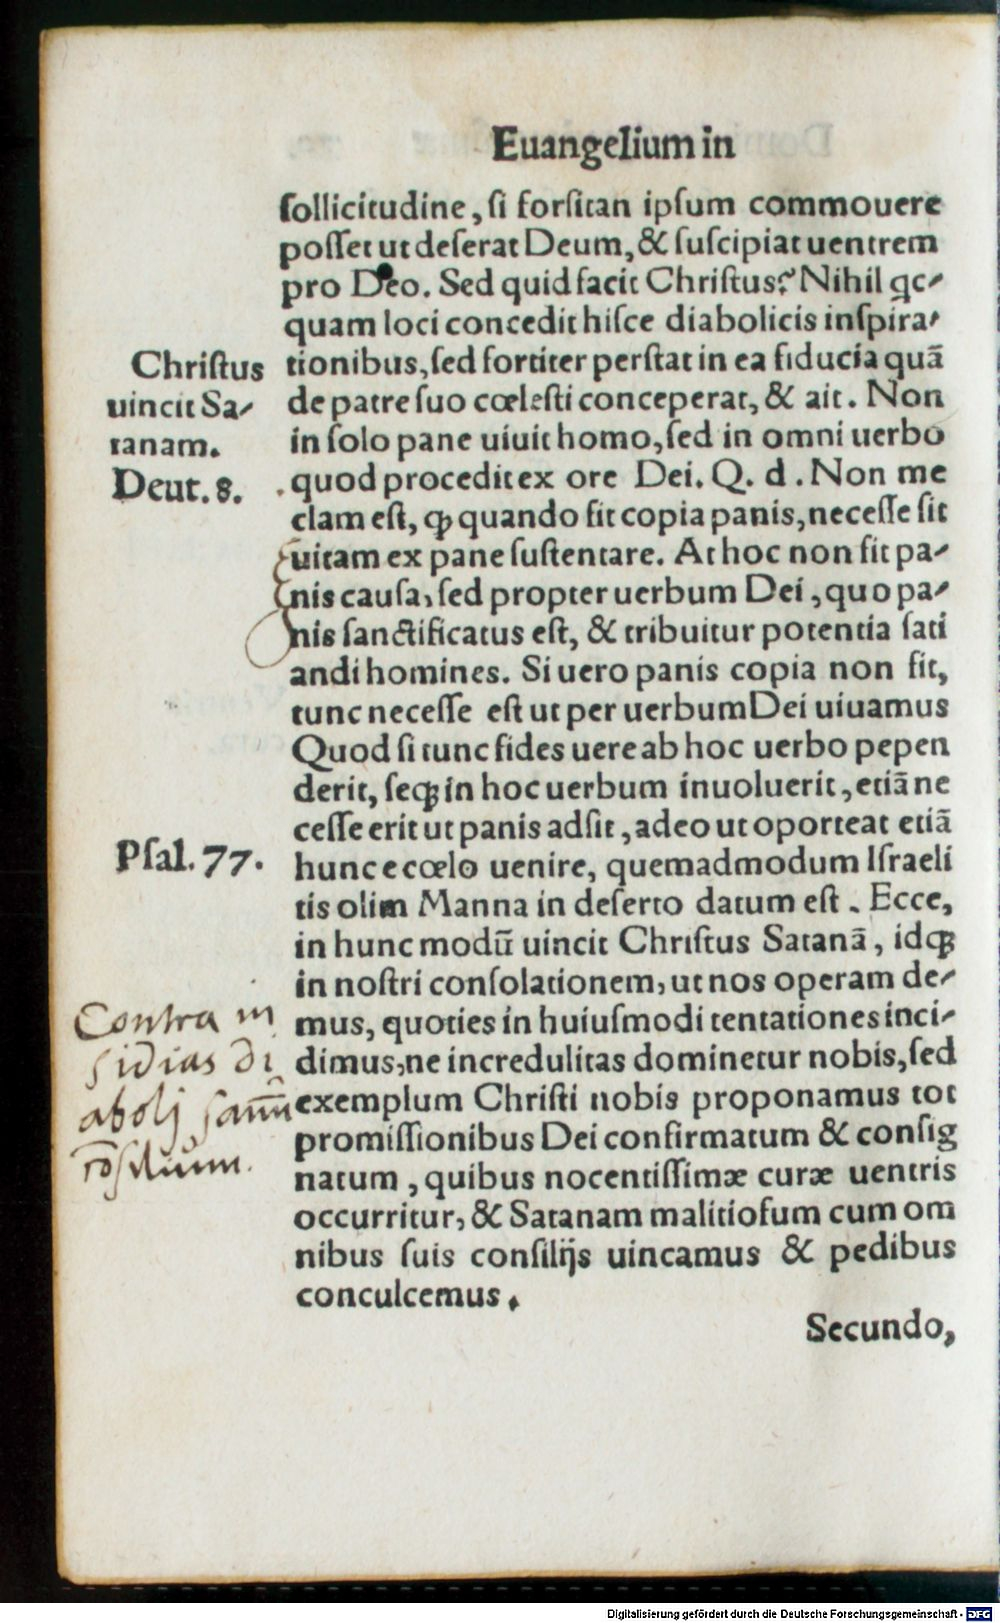 Euangelium in
sollicitudine, si forsitan ipsum commouere
posset ut deserat Deum, & suscipiat uentrem
pro Deo. Sed quid facit Christus? Nihil qc-
quam loci concedit hisce diabolicis inspira-
tionibus, sed fortiter perstat in ea fiducia quā
de patre suo cœlesti conceperat, & ait. Non
in solo pane uiuit homo, sed in omni uerbo
quod procedit ex ore Dei. Q. d. Non me
clam est, ꝙ quando sit copia panis, necesse sit
uitam ex pane sustentare. At hoc non fit pa-
nis causa, sed propter uerbum Dei, quo pa-
nis sanctificatus est, & tribuitur potentia sati
andi homines. Si uero panis copia non sit,
tunc necesse est ut per uerbum Dei uiuamus
Quod si tunc fides uere ab hoc uerbo pepen
derit, seqꝫ in hoc uerbum inuoluerit, etiā ne
cesse erit ut panis adsit, adeo ut oporteat etiā
hunc e cœlo uenire, quemadmodum Israeli
tis olim Manna in deserto datum est. Ecce,
in hunc modū uincit Christus Satanā, idqꝫ
in nostri consolationem, ut nos operam de-
mus, quoties in huiusmodi tentationes inci-
dimus, ne incredulitas dominetur nobis, sed
exemplum Christi nobis proponamus tot
promissionibus Dei confirmatum & consig
natum, quibus nocentissimæ curæ uentris
occurritur, & Satanam malitiosum cum om
nibus suis consilijs uincamus & pedibus
conculcemus.
Secundo,
Christus
uincit Sa-
tanam.
Deut. 8.
Psal. 77.
Contra in
sidias di
abolj sanū
cōsilium.
Digitalisierung gefördert durch die Deutsche Forschungsgemeinschaft - DFG